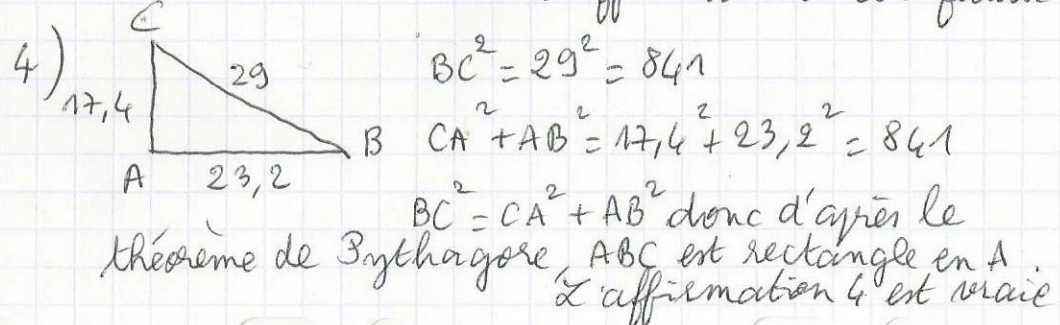 4)
C
29
17,4
A
23,2
B
BC² = 29² = 841
CA² + AB² = 17,4² + 23,2² = 841
BC² = CA² + AB² donc d'après le
théorème de Pythagore, ABC est rectangle en A.
L'affirmation 4 est vraie